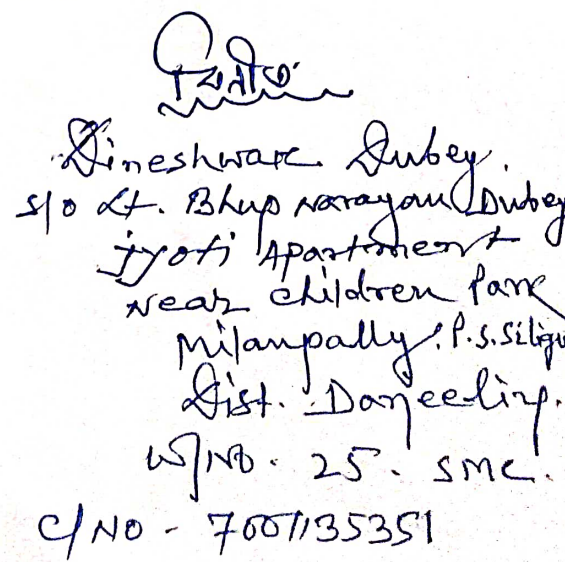 বিনীত
Dineshwar Dubey.
S/o Lt. Bhup Narayan Dubey
Jyoti Apartment
Near Children Park
Milanpally. P.S. Siligu
Dist. Darjeeling.
W/No. 25. SMC.
C/NO - 7001135351